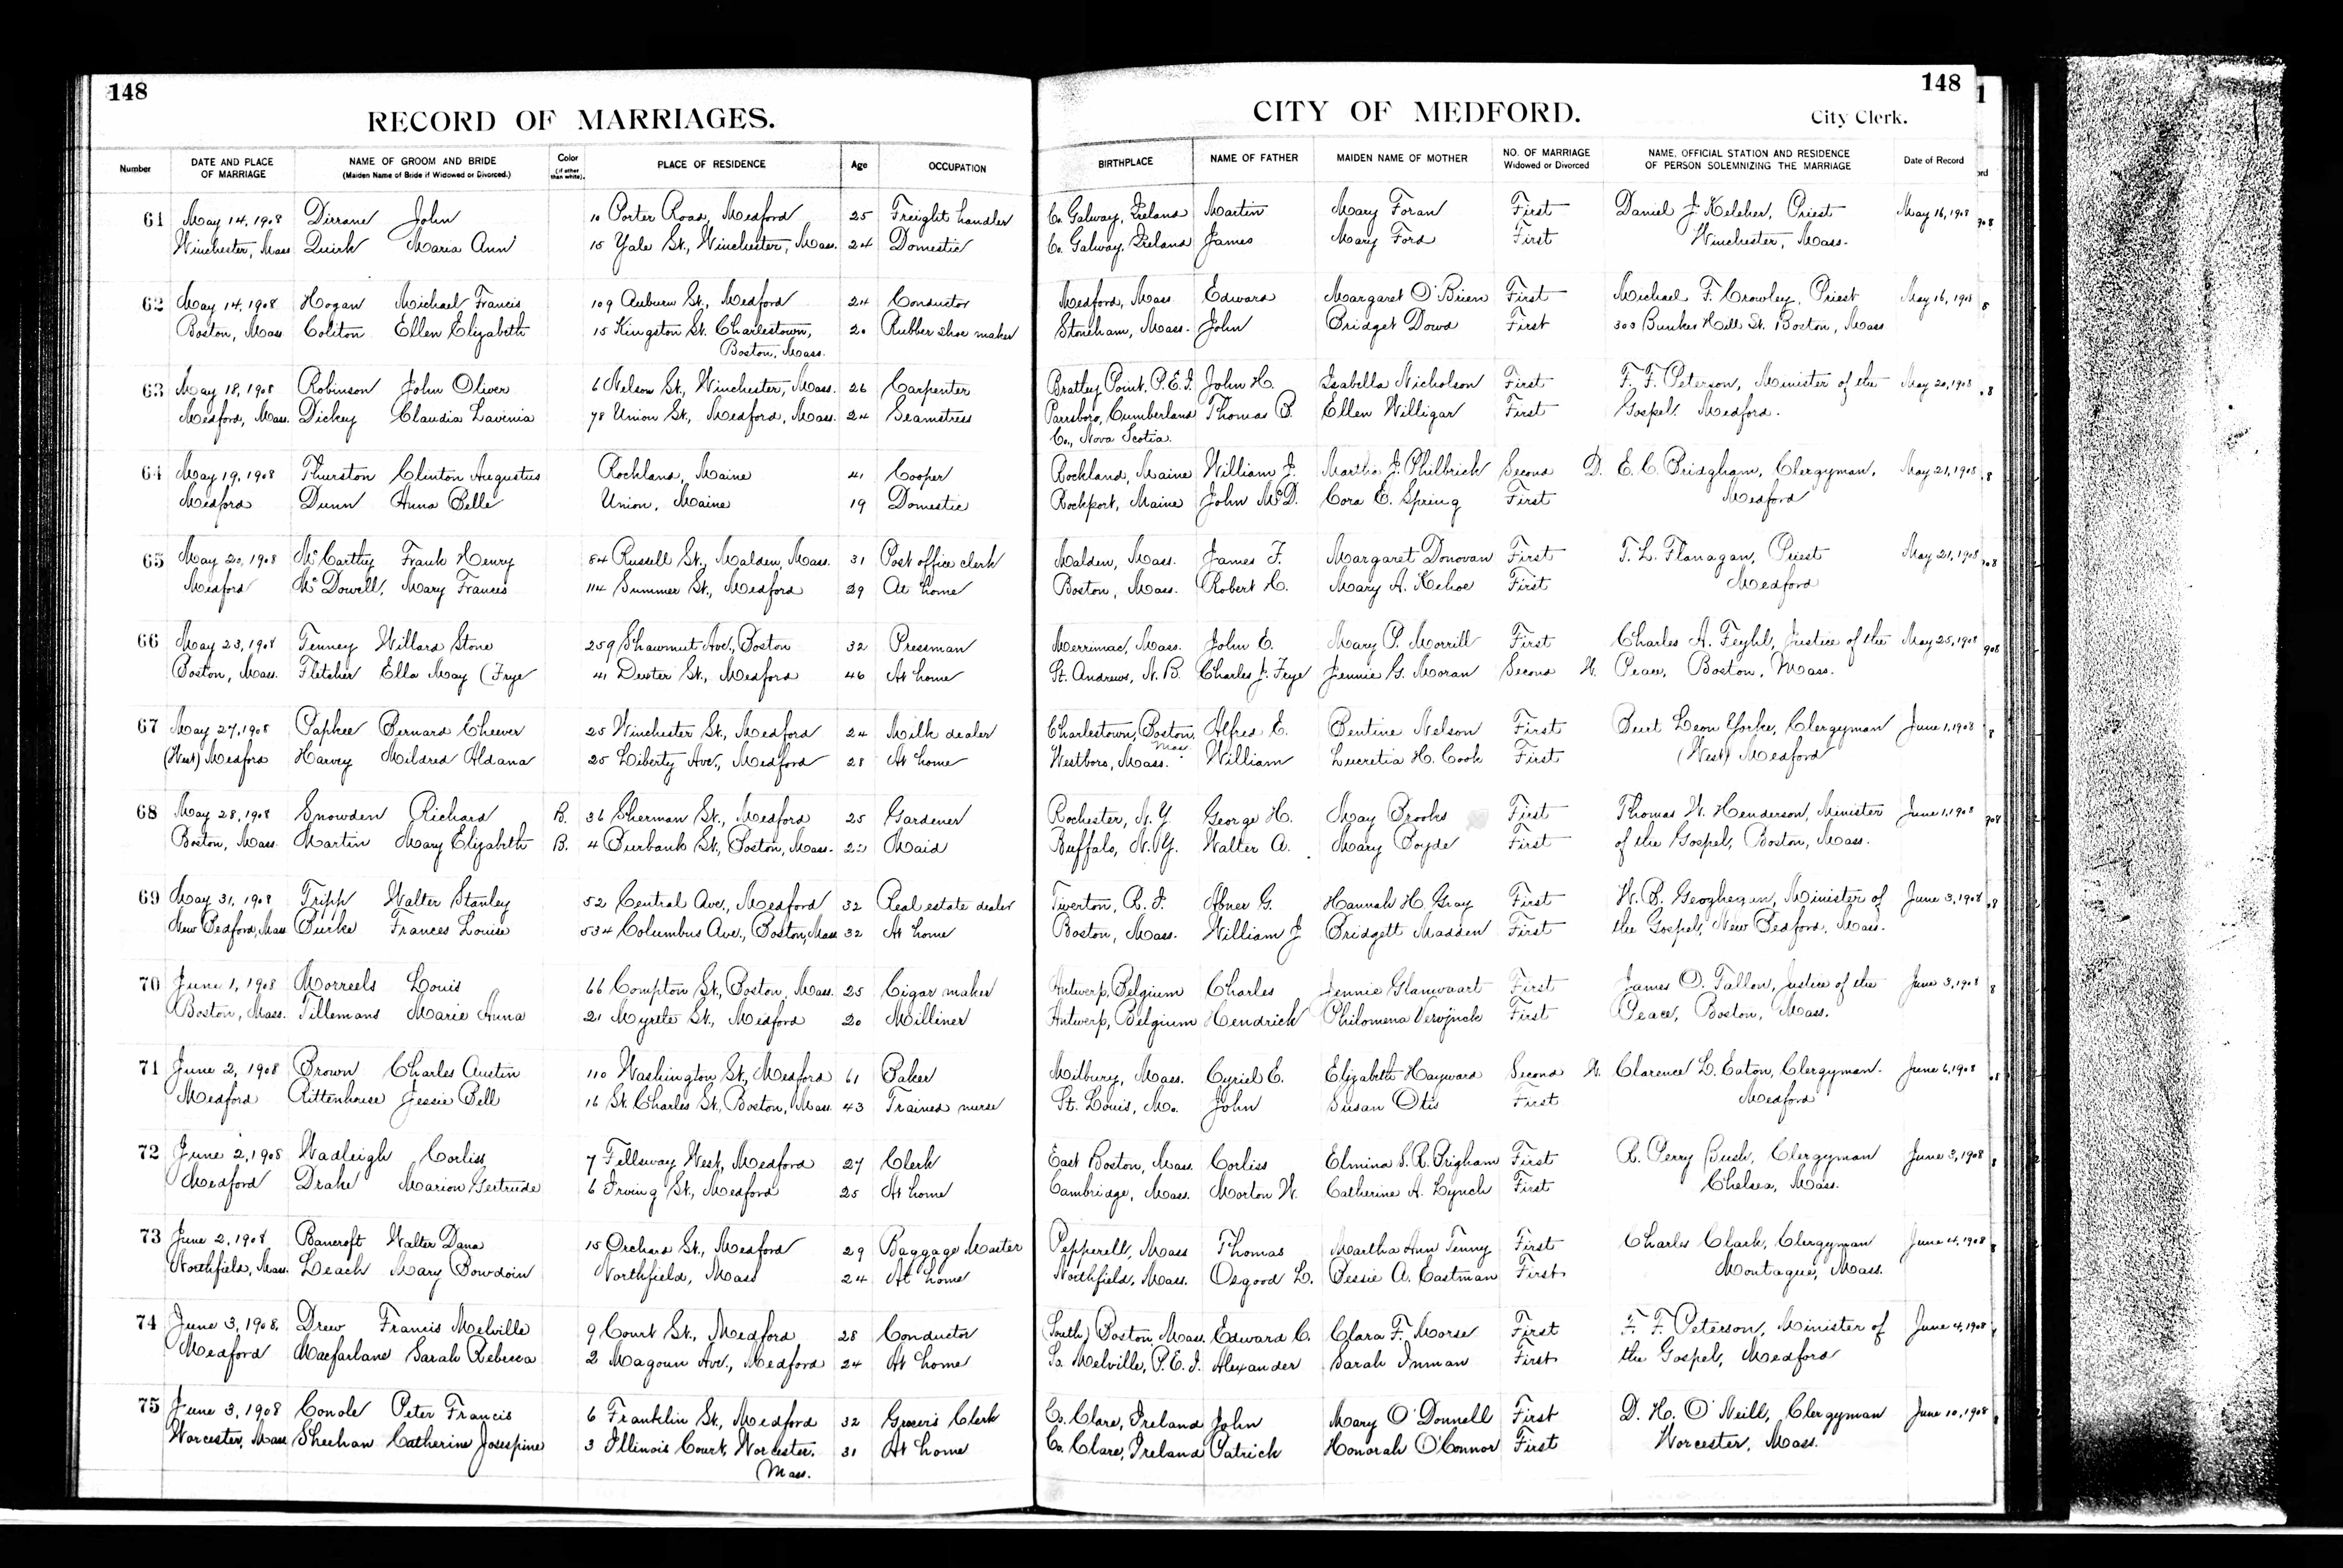 148
RECORD OF MARRIAGES.
148
CITY OF MEDFORD.
City Clerk.
Number DATE AND PLACE OF MARRIAGE NAME OF GROOM AND BRIDE (Maiden Name of Bride if Widowed or Divorced.) Color (if other than white). PLACE OF RESIDENCE Age OCCUPATION BIRTHPLACE NAME OF FATHER MAIDEN NAME OF MOTHER NO. OF MARRIAGE Widowed or Divorced NAME, OFFICIAL STATION AND RESIDENCE OF PERSON SOLEMNIZING THE MARRIAGE Date of Record
61 May 14, 1908 Dirrane John 10 Porter Road, Medford 25 Freight handler Co. Galway, Ireland Martin Mary Foran First Daniel J. Keleher, Priest May 16, 1908
Winchester, Mass Quirk Maria Ann 15 Yale St., Winchester, Mass. 24 Domestic Co. Galway, Ireland James Mary Ford First Winchester, Mass.
62 May 14, 1908 Hogan Michael Francis 109 Auburn St., Medford 24 Conductor Medford, Mass Edward Margaret O'Brien First Michael F. Crowley, Priest May 16, 1908
Boston, Mass. Coliton Ellen Elizabeth 15 Kingston St. Charlestown, 20 Rubber shoe maker Stoneham, Mass. John Bridget Dowd First 303 Bunker Hill St. Boston, Mass
Boston, Mass.
63 May 18, 1908 Robinson John Oliver 6 Nelson St., Winchester, Mass. 26 Carpenter Bratley Point, P.E.I. John H. Isabella Nicholson First F. F. Peterson, Minister of the May 20, 1908
Medford, Mass. Dickey Claudia Lavinia 78 Union St., Medford, Mass. 24 Seamstress Parrsboro, Cumberland Thomas B. Ellen Willigar First Gospel. Medford.
Co., Nova Scotia.
64 May 19, 1908 Thurston Clinton Augustus Rockland, Maine 41 Cooper Rockland, Maine William J. Martha J. Philbrick Second D. E. C. Bridgham, Clergyman, May 21, 1908
Medford Dunn Anna Belle Union, Maine 19 Domestic Rockport, Maine John McD. Cora E. Spring First Medford
65 May 20, 1908 McCarthy Frank Henry 84 Russell St., Malden, Mass. 31 Post office clerk Malden, Mass. James F. Margaret Donovan First T. L. Flanagan, Priest May 21, 1908
Medford McDowell, Mary Frances 114 Summer St., Medford 29 At home Boston, Mass. Robert H. Mary A. Kehoe First Medford
66 May 23, 1908 Tenney Willard Stone 259 Shawmut Ave., Boston 32 Pressman Merrimac, Mass. John E. Mary P. Morrill First Charles A. Feyhl, Justice of the May 25, 1908
Boston, Mass. Fletcher Ella May (Frye 41 Dexter St., Medford 46 At home St. Andrews, N. B. Charles J. Frye Jennie G. Moran Second W. Peace, Boston, Mass.
67 May 27, 1908 Papkee Bernard Cheever 25 Winchester St., Medford 24 Milk dealer Charlestown, Boston, Mass. Alfred E. Bentine Nelson First Burt Leon Yorke, Clergyman June 1, 1908
(West) Medford Harvey Mildred Aldana 25 Liberty Ave., Medford 28 At home Westboro, Mass. William Lucretia H. Cook First (West) Medford
68 May 28, 1908 Snowden Richard B. 36 Sherman St., Medford 25 Gardener Rochester, N.Y. George H. May Brooks First Thomas W. Henderson, Minister June 1, 1908
Boston, Mass. Martin Mary Elizabeth B. 4 Burbank St., Boston, Mass. Maid Buffalo, N.Y. Walter A. Mary Boyde First of the Gospel, Boston, Mass.
69 May 31, 1908 Tripp Walter Stanley 52 Central Ave., Medford 32 Real estate dealer Tiverton, R. I. Abner G. Hannah H. Gray First W. B. Geoghegan, Minister of June 3, 1908
New Bedford, Mass Burke Frances Louise 534 Columbus Ave., Boston, Mass 32 At home Boston, Mass. William J Bridgett Madden First the Gospel, New Bedford, Mass.
70 June 1, 1908 Morreels Louis 66 Compton St., Boston, Mass. 25 Cigar maker Antwerp, Belgium Charles Jennie First James O. Fallon, Justice of the June 3, 1908
Boston, Mass. Tillemans Marie Anna 21 Myrtle St., Medford 20 Milliner Antwerp, Belgium Hendrick Philomena First Peace, Boston, Mass.
71 June 2, 1908 Brown Charles Austin 110 Washington St., Medford 61 Baker Milbury, Mass. Cyriel E. Elizabeth Hayward Second W. Clarence L. Eaton, Clergyman. June 6, 1908
Medford Rittenhouse Jessie Bell 16 St. Charles St., Boston, Mass. 43 Trained nurse St. Louis, Mo. John Susan Otis First Medford
72 June 2, 1908 Wadleigh Corliss 7 Fellsway West, Medford 27 Clerk East Boston, Mass. Corliss Elmina S. R. Brigham First R. Perry Bush, Clergyman June 3, 1908
Medford Drake Marion Gertrude 6 Irving St., Medford 25 At home Cambridge, Mass. Morton W. Catherine A. Lynch First Chelsea, Mass.
73 June 2, 1908 Bancroft Walter Dana 15 Orchard St., Medford 29 Baggage Master Pepperell, Mass Thomas Martha Ann Tenny First Charles Clark, Clergyman June 4, 1908
Northfield, Mass. Leach Mary Bowdoin Northfield, Mass 24 At home Northfield, Mass. Osgood L. Bessie A. Eastman First Montague, Mass.
74 June 3, 1908. Drew Francis Melville 9 Court St., Medford 28 Conductor (South) Boston Mass. Edward C. Clara F. Morse First F. F. Peterson, Minister of June 4, 1908
Medford Macfarlane Sarah Rebecca 2 Magoun Ave., Medford 24 At home So. Melville, P.E.I. Alexander Sarah Inman First the Gospel, Medford
75 June 3, 1908 Conole Peter Francis 6 Franklin St., Medford 32 Grocer's Clerk Co. Clare, Ireland John Mary O'Donnell First D. H. O'Neill, Clergyman June 10, 1908
Worcester, Mass Sheehan Catherine Josephine 3 Illinois Court, Worcester, 31 At home Co. Clare, Ireland Patrick Honorah O'Connor First Worcester, Mass.
Mass.